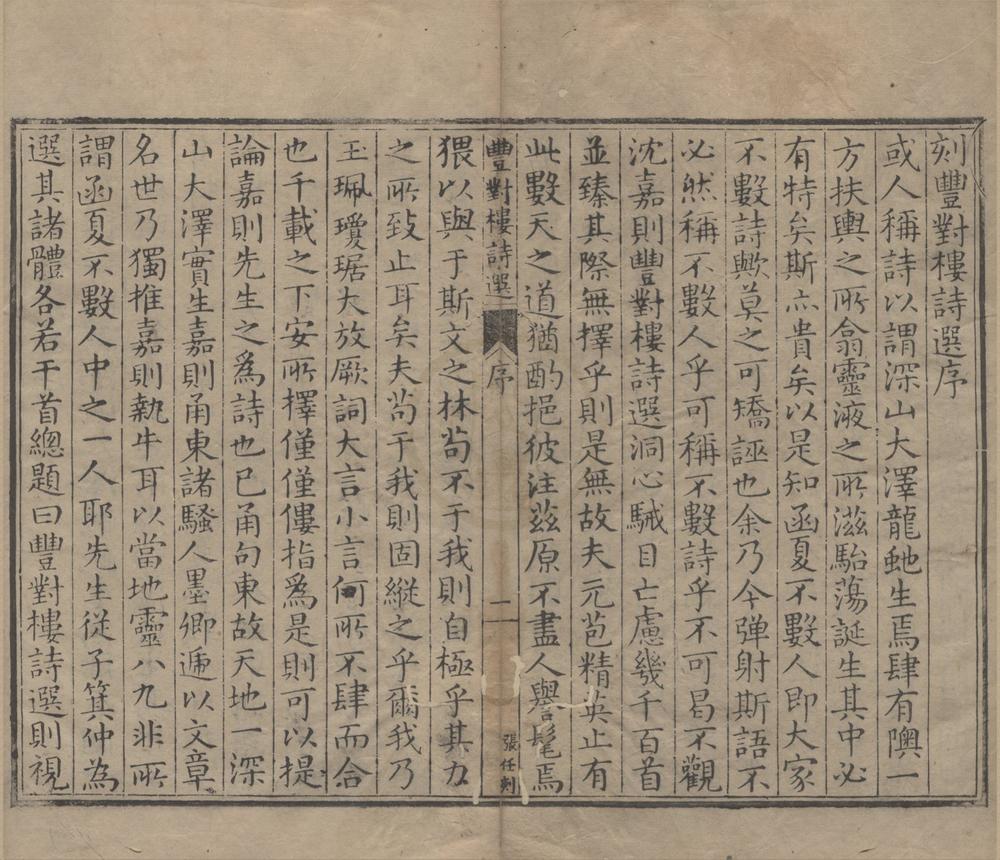 刻豐對樓詩選序
或人稱詩以謂深山大澤龍虵生焉肆有隩一
方扶輿之所翕靈液之所滋駘蕩誕生其中必
有特矣斯亦貴矣以是知函夏不數人即大家
不數詩歟莫之可矯誣也余乃今弹射斯語不
必然稱不數人乎可稱不數詩乎不可曷不觀
沈嘉則豐對樓詩選洞心駴目亡慮幾千百首
並臻其際無擇乎則是無故夫元苞精英止有
此數天之道猶酌挹彼注茲原不盡人譽髦焉
豐對樓詩選
序
二
張任刻
猥以與于斯文之林茍不于我則自極乎其力
之所致止耳矣夫茍于我則固縱之乎爾我乃
玉珮瓊琚大放厥詞大言小言何所不肆而合
也千載之下安所擇僅僅僂指爲是則可以提
論嘉則先生之爲詩也已甬句東故天地一深
山大澤實生嘉則甬東諸騷人墨卿逓以文章
名世乃獨推嘉則執牛耳以當地靈八九非所
謂函夏不數人中之一人耶先生從子箕仲為
選其諸體各若干首總題曰豐對樓詩選則視